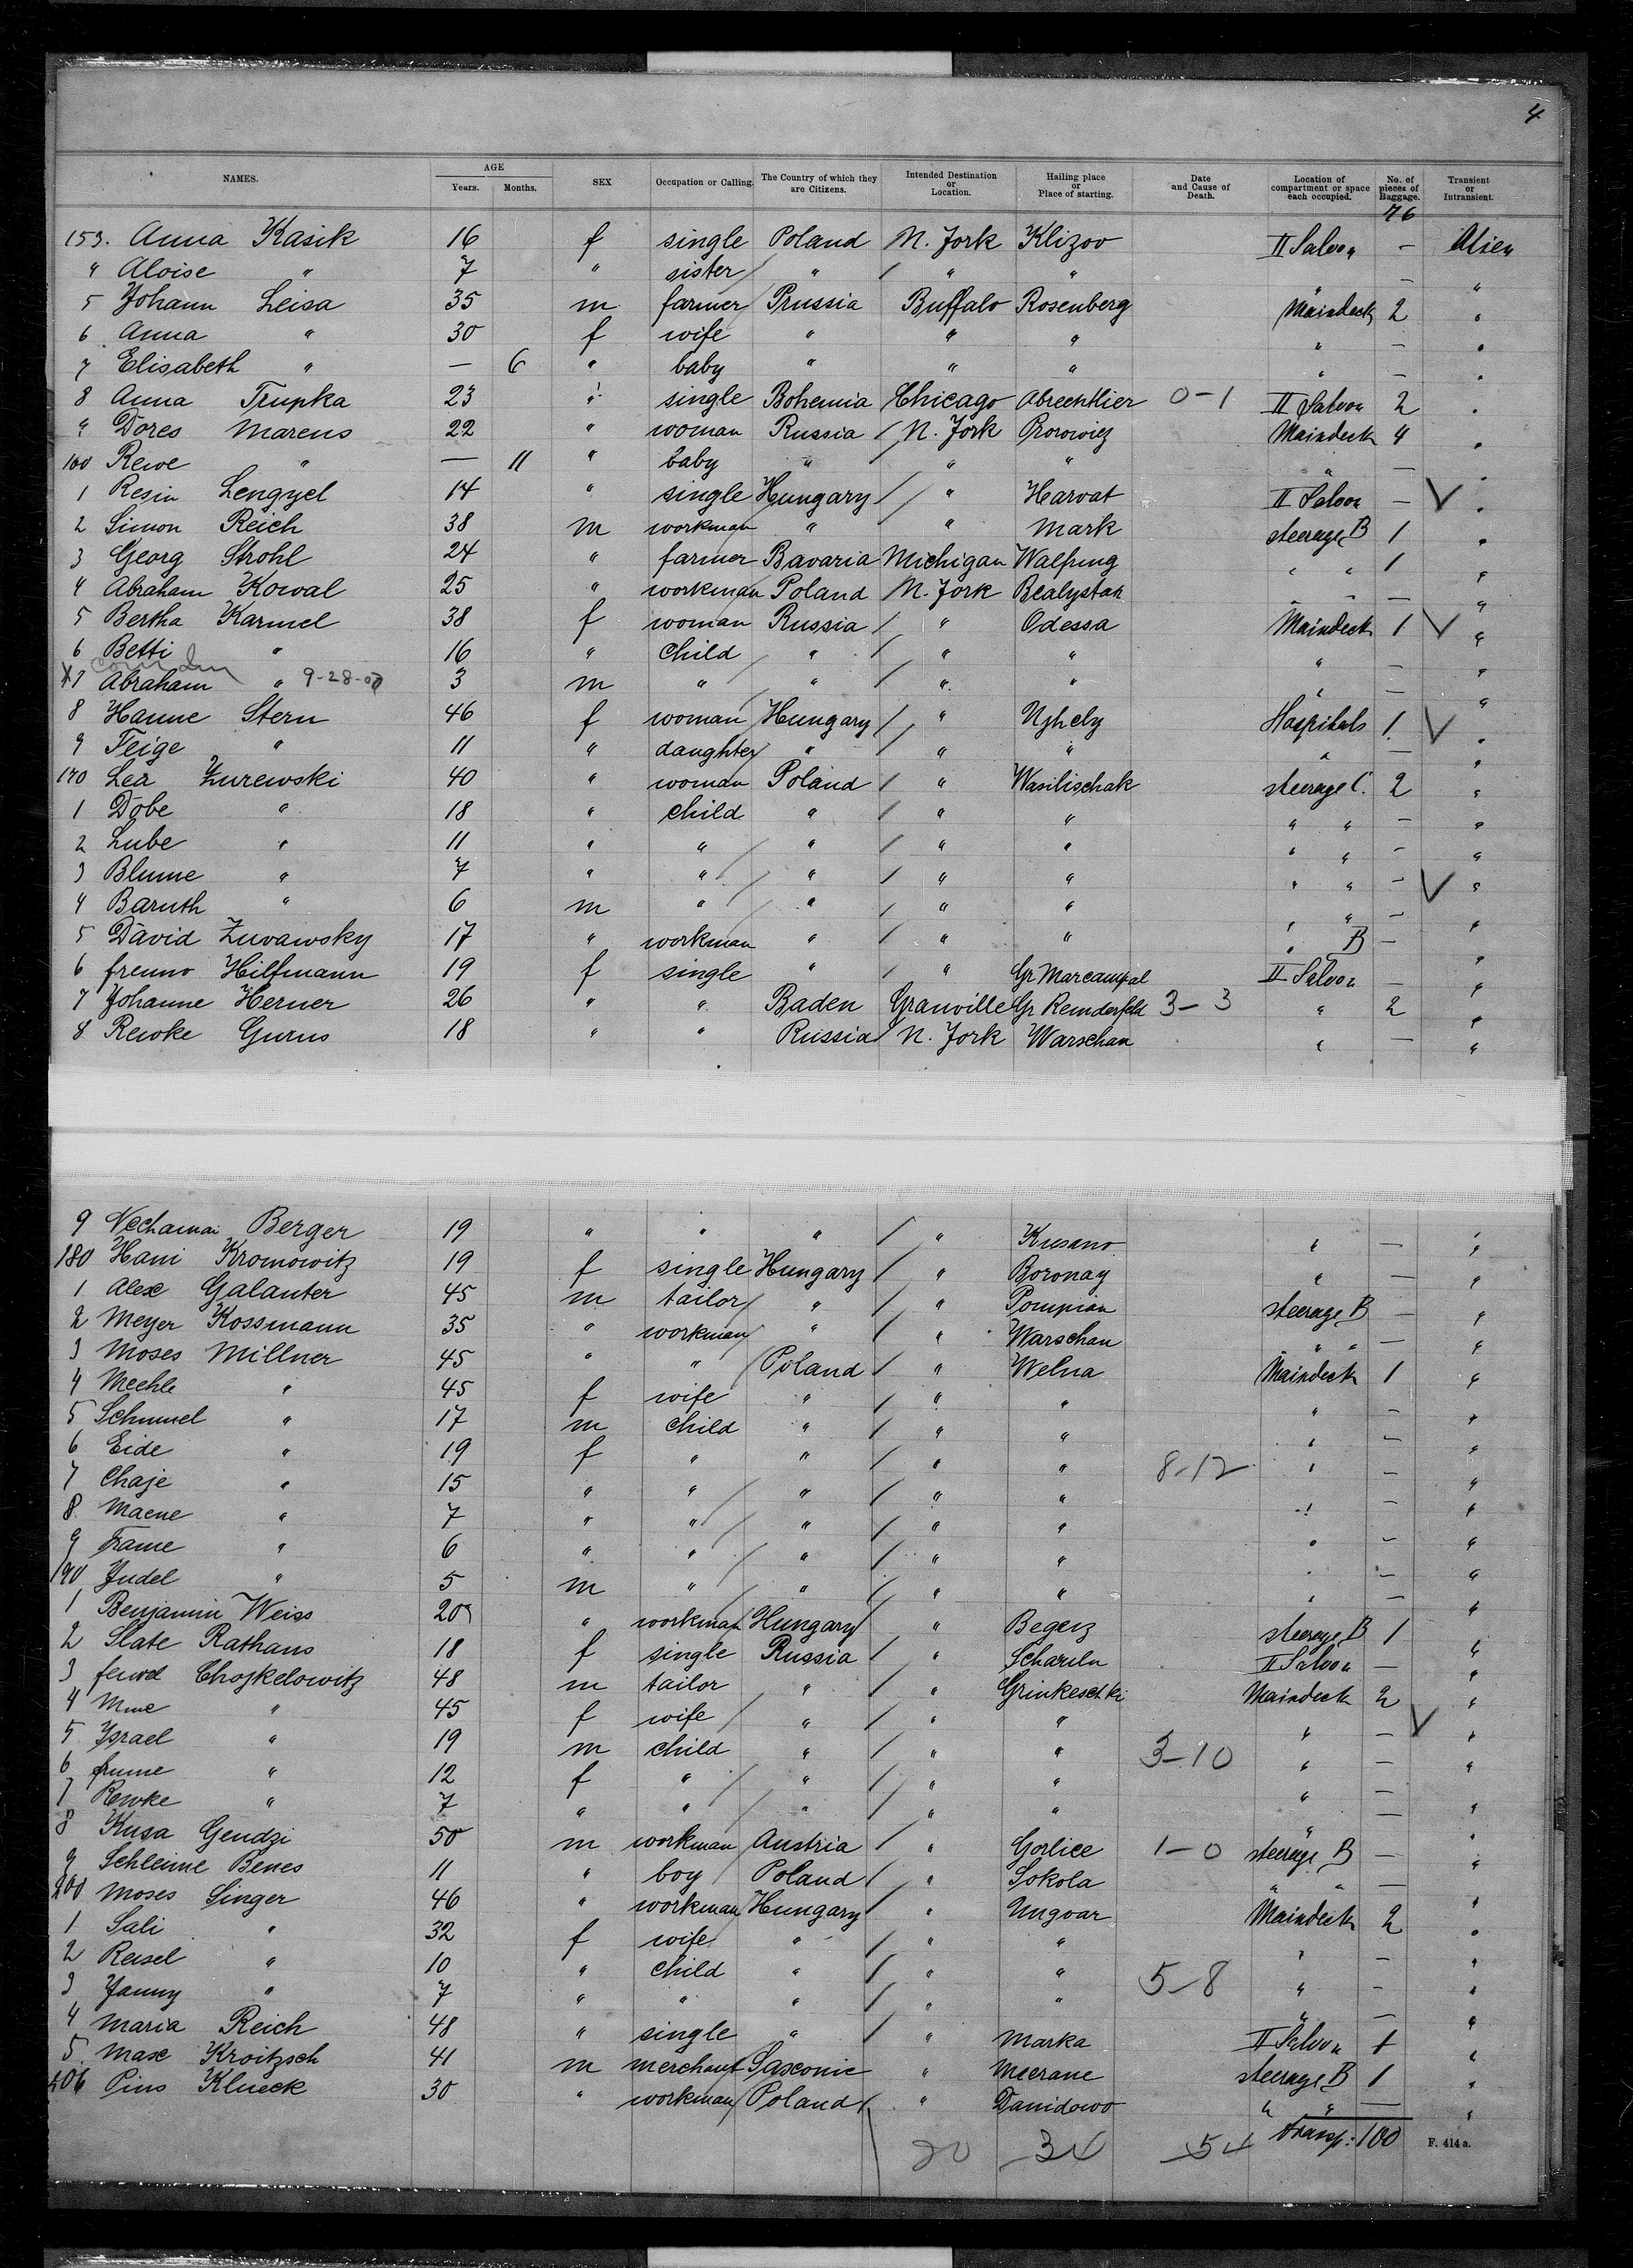 4
NAMES. AGE Years. Months. SEX Occupation or Calling. The Country of which they are Citizens. Intended Destination or Location. Hailing place or Place of starting. Date and Cause of Death. Location of compartment or space each occupied. No. of pieces of Baggage. Transient or Intransient.
76
153. Anna Kasik 16 f single Poland N. York Klizov II Saloon – Alien
4 Aloise " 7 " sister " " " " – "
5 Johann Leisa 35 m farmer Prussia Buffalo Rosenberg Maindeck 2 "
6 Anna " 30 f wife " " " " – "
7 Elisabeth " — 6 " baby " " " " – "
8 Anna Trupka 23 " single Bohemia Chicago Abrechtlier 0-1 II Saloon 2 "
9 Dores Marcus 22 " woman Russia N. York Prorowicz Maindeck 4 "
160 Rewe " — 11 " baby " " " " – "
1 Resin Lengyel 14 " single Hungary " Harvat II Saloon – V "
2 Simon Reich 38 m workman " " Mark steerage B 1 "
3 Georg Strohl 24 " farmer Bavaria Michigan Walpung " " 1 "
4 Abraham Kowal 25 " workman Poland N. York Bealystok " " – "
5 Bertha Karmel 38 f woman Russia " Odessa Maindeck 1 V "
6 Betti " 16 " child " " " " – "
x7 Abraham " 9-28-07 3 m " " " " " – "
8 Hanne Stern 46 f woman Hungary " Ujhely Hospitals 1 V "
9 Feige " 11 " daughter " " " " – "
170 Lea Zurewski 40 " woman Poland " Wasilischak steerage C. 2 "
1 Dobe " 18 " child " " " " " – "
2 Lube " 11 " " " " " " " – "
3 Blume " 7 " " " " " " " – V "
4 Baruth " 6 m " " " " " " – "
5 David Zuwawsky 17 " workman " " " " B – "
6 freuno Hilfmann 19 f single " " Gr Marcampal II Saloon – "
7 Johanne Herner 26 " " Baden Granville Gr Remderfeld 3-3 " 2 "
8 Rewke Gurus 18 " " Russia N. York Warschau " – "
9 Nechamai Berger 19 " " " " Kusano " – "
180 Hani Kromowitz 19 f single Hungary " Boronay " – "
1 Alex Galanter 45 m tailor " " Pompian steerage B – "
2 Meyer Kossmann 35 " workman " " Warschau " " – "
3 Moses Millner 45 " " Poland " Welna Maindeck 1 "
4 Mechle " 45 f wife " " " " – "
5 Schmuel " 17 m child " " " " – "
6 Eide " 19 f " " " " 8-12 " – "
7 Chaje " 15 " " " " " " – "
8 Maene " 7 " " " " " " – "
9 Frame " 6 " " " " " " – "
190 Judel " 5 m " " " " " – "
1 Benjamin Weiss 20 " workman Hungary " Begerz steerage B 1 "
2 Slate Rathaus 18 f single Russia " Scharuln II Saloon – "
3 feiwd Chojkelowitz 48 m tailor " " Grinkeschki Maindeck 2 "
4 Mine " 45 f wife " " " " – V "
5 Israel " 19 m child " " " 3-10 " – "
6 frume " 12 f " " " " " – "
7 Rewke " 7 " " " " " " – "
8 Kusa Gendzi 50 m workman Austria " Gorlice 1-0 steerage B – "
9 Schleime Benes 11 " boy Poland " Sokola " " – "
200 Moses Singer 46 " workman Hungary " Ungvar Maindeck 2 "
1 Sali " 32 f wife " " " " – "
2 Reisel " 10 " child " " " 5-8 " – "
3 Fanny " 7 " " " " " " – "
4 Maria Reich 48 " single " " Marka II Saloon 1 "
5 Max Kroitzsch 41 m merchant Saxonie " Meerane steerage B 1 "
206 Pius Klueck 30 " workman Poland " Danidowo " " – "
20 34 54 transp: 100 F. 414 a.